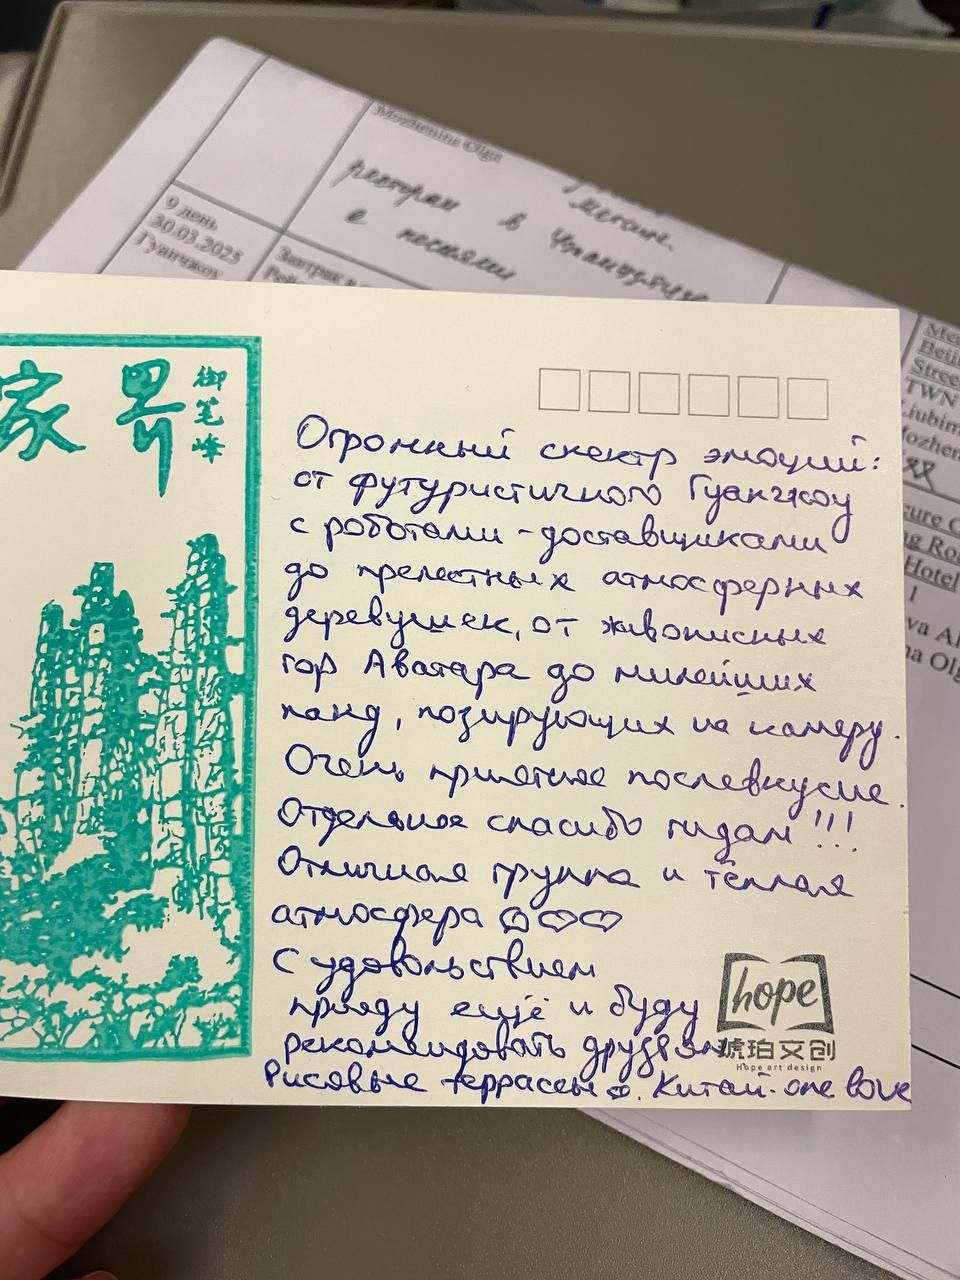 Mozhenina Olga
ресторан в
с песнями
9 день
30.03.2025
Гуанчжоу
Завтрак в
家界
御笔峰
Огромный спектр эмоций:
от футуристичного Гуанчжоу
с роботами-доставщиками
до прелестных атмосферных
деревушек, от живописных
гор Аватара до милейших
панд, позирующих на камеру.
Очень приятное послевкусие.
Отдельное спасибо гидам!!!
Отличная группа и тёплая
атмосфера ♡♡♡
С удовольствием
приеду ещё и буду
рекомендовать друзьям
Рисовые террасы ♡. Китай-one love
hope
琥珀文创
Hope art design
Beij
Stree
TWN
Liubim
Mozhen
双
Hotel
1
va Al
na Olg